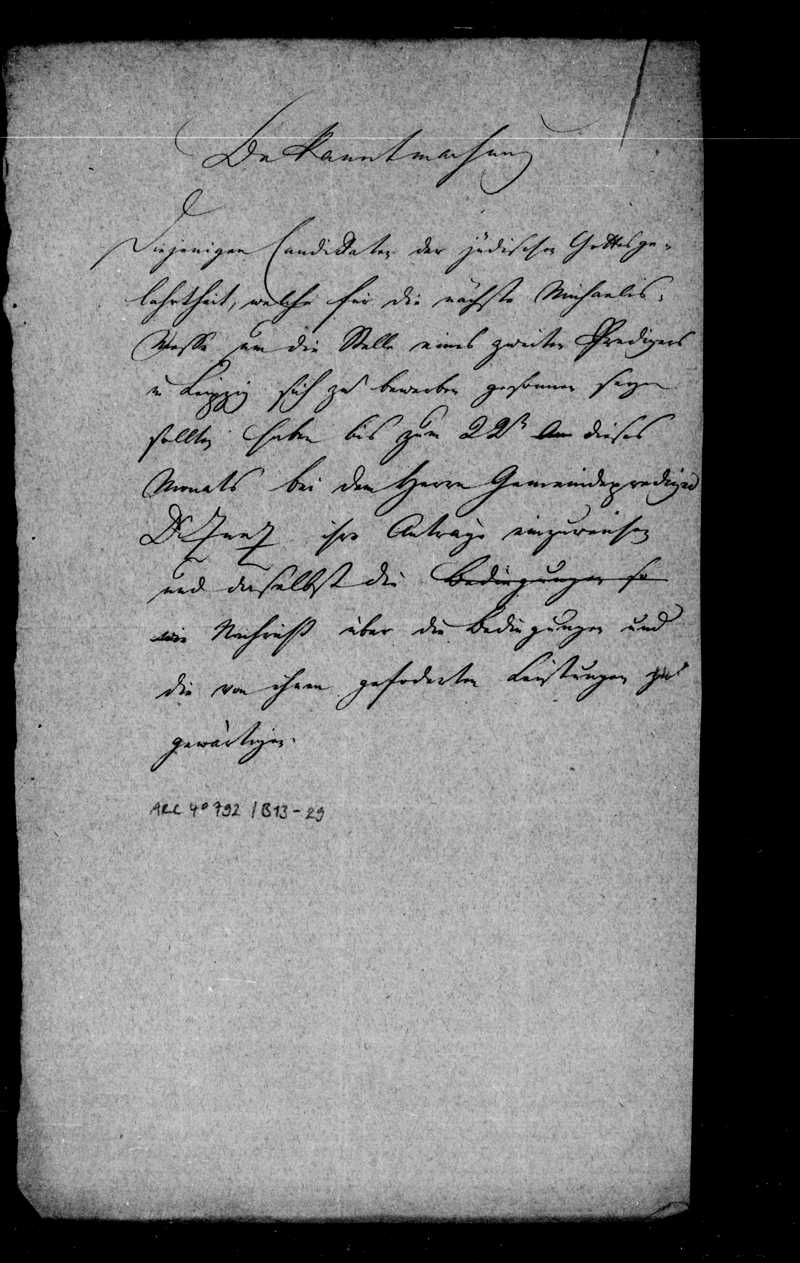 Bekanntmachung
Diejenigen Candidaten der jüdischen Gottesge-
lahrtheit, welche für die nächste Michaelis-
Messe um die Stelle eines zweiten Predigers
in Leipzig sich zu bewerben gesonnen seyn
sollten haben bis zum 22t dieses
Monats bei dem Herrn Gemeindeprediger
Dr Zunz ihre Anträge einzureichen
und daselbst die Bedingungen so
wie Nachricht über die Bedingungen und
die von ihnen geforderten Leistungen zu
gewärtigen.
ARC 4° 792 / B13-29